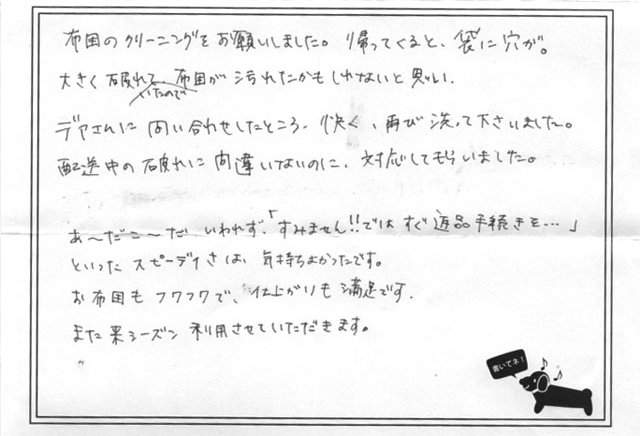 布団のクリーニングをお願いしました。帰ってくると、袋に穴が。
大きく破れていたので、布団が汚れたかもしれないと思い、
デアさんに問い合わせしたところ、快く、再び洗って下さいました。
配送中の破れに間違いないのに、対応してもらいました。
あ〜だこ〜だ いわれず、「すみません!!ではすぐ返品手続きを…」
といった スピーディさは、気持ちよかったです。
お布団もフワフワで、仕上がりも満足です。
また来シーズン利用させていただきます。
書いてネ!